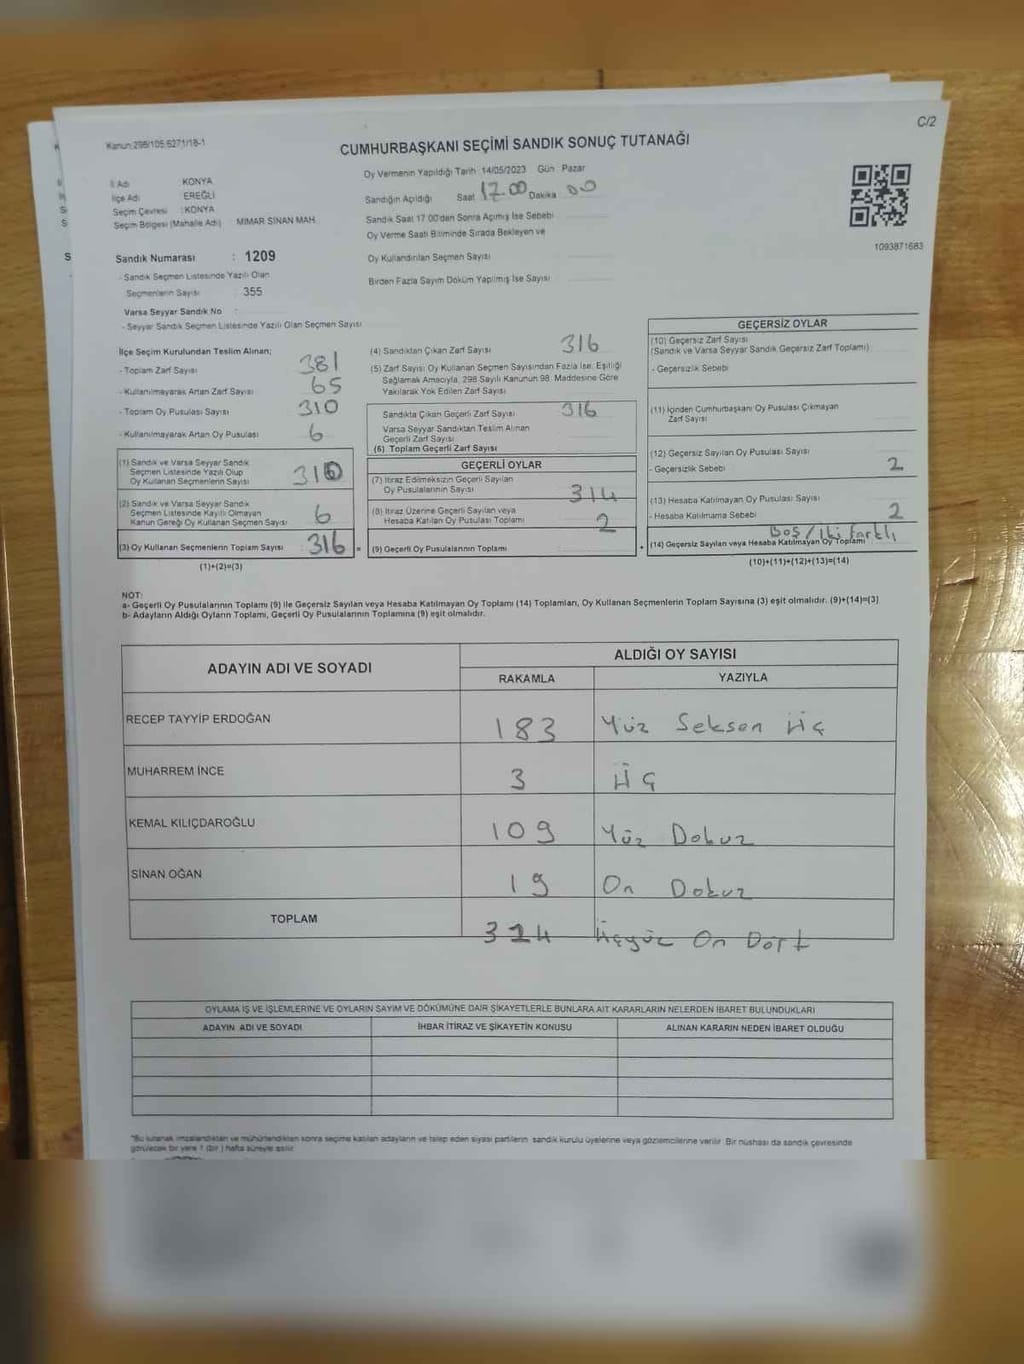 C/2
Kanun:298/105,6271/18-1
CUMHURBAŞKANI SEÇİMİ SANDIK SONUÇ TUTANAĞI
İl Adı KONYA
İlçe Adı EREĞLİ
Seçim Çevresi : KONYA
Seçim Bölgesi (Mahalle Adı) MİMAR SİNAN MAH.
Oy Vermenin Yapıldığı Tarih 14/05/2023 Gün Pazar
Sandığın Açıldığı Saat 17.00 Dakika 00
Sandık Saat 17.00'den Sonra Açılmış İse Sebebi
Oy Verme Saati Bitiminde Sırada Bekleyen ve
Oy Kullandırılan Seçmen Sayısı
Birden Fazla Sayım Döküm Yapılmış İse Sayısı
1093871683
Sandık Numarası : 1209
- Sandık Seçmen Listesinde Yazılı Olan
Seçmenlerin Sayısı : 355
Varsa Seyyar Sandık No
- Seyyar Sandık Seçmen Listesinde Yazılı Olan Seçmen Sayısı
İlçe Seçim Kurulundan Teslim Alınan;
- Toplam Zarf Sayısı 381
- Kullanılmayarak Artan Zarf Sayısı 65
- Toplam Oy Pusulası Sayısı 310
- Kullanılmayarak Artan Oy Pusulası 6
(1) Sandık ve Varsa Seyyar Sandık
Seçmen Listesinde Yazılı Olup
Oy Kullanan Seçmenlerin Sayısı 310
(2) Sandık ve Varsa Seyyar Sandık
Seçmen Listesinde Kayıtlı Olmayan
Kanun Gereği Oy Kullanan Seçmen Sayısı 6
(3) Oy Kullanan Seçmenlerin Toplam Sayısı 316 =
(1)+(2)=(3)
(4) Sandıktan Çıkan Zarf Sayısı 316
(5) Zarf Sayısı Oy Kullanan Seçmen Sayısından Fazla İse, Eşitliği
Sağlamak Amacıyla, 298 Sayılı Kanunun 98. Maddesine Göre
Yakılarak Yok Edilen Zarf Sayısı
Sandıkta Çıkan Geçerli Zarf Sayısı 316
Varsa Seyyar Sandıktan Teslim Alınan
Geçerli Zarf Sayısı
(6) Toplam Geçerli Zarf Sayısı
GEÇERLİ OYLAR
(7) İtiraz Edilmeksizin Geçerli Sayılan
Oy Pusulalarının Sayısı 314
(8) İtiraz Üzerine Geçerli Sayılan veya
Hesaba Katılan Oy Pusulası Toplamı 2
(9) Geçerli Oy Pusulalarının Toplamı +
GEÇERSİZ OYLAR
(10) Geçersiz Zarf Sayısı
(Sandık ve Varsa Seyyar Sandık Geçersiz Zarf Toplamı)
- Geçersizlik Sebebi
(11) İçinden Cumhurbaşkanı Oy Pusulası Çıkmayan
Zarf Sayısı
(12) Geçersiz Sayılan Oy Pusulası Sayısı
- Geçersizlik Sebebi 2
(13) Hesaba Katılmayan Oy Pusulası Sayısı
- Hesaba Katılmama Sebebi 2
Boş / İki farklı
(14) Geçersiz Sayılan veya Hesaba Katılmayan Oy Toplamı
(10)+(11)+(12)+(13)=(14)
NOT:
a- Geçerli Oy Pusulalarının Toplamı (9) ile Geçersiz Sayılan veya Hesaba Katılmayan Oy Toplamı (14) Toplamları, Oy Kullanan Seçmenlerin Toplam Sayısına (3) eşit olmalıdır. (9)+(14)=(3)
b- Adayların Aldığı Oyların Toplamı, Geçerli Oy Pusulalarının Toplamına (9) eşit olmalıdır.
ADAYIN ADI VE SOYADI ALDIĞI OY SAYISI
RAKAMLA YAZIYLA
RECEP TAYYİP ERDOĞAN 183 Yüz Seksen Üç
MUHARREM İNCE 3 Üç
KEMAL KILIÇDAROĞLU 109 Yüz Dokuz
SİNAN OĞAN 19 On Dokuz
TOPLAM 314 Üçyüz On Dört
OYLAMA İŞ VE İŞLEMLERİNE VE OYLARIN SAYIM VE DÖKÜMÜNE DAİR ŞİKAYETLERLE BUNLARA AİT KARARLARIN NELERDEN İBARET BULUNDUKLARI
ADAYIN ADI VE SOYADI İHBAR İTİRAZ VE ŞİKAYETİN KONUSU ALINAN KARARIN NEDEN İBARET OLDUĞU
*Bu tutanak imzalandıktan ve mühürlendikten sonra seçime katılan adayların ve talep eden siyasi partilerin sandık kurulu üyelerine veya gözlemcilerine verilir. Bir nüshası da sandık çevresinde
görülecek bir yere 1 (bir) hafta süreyle asılır.